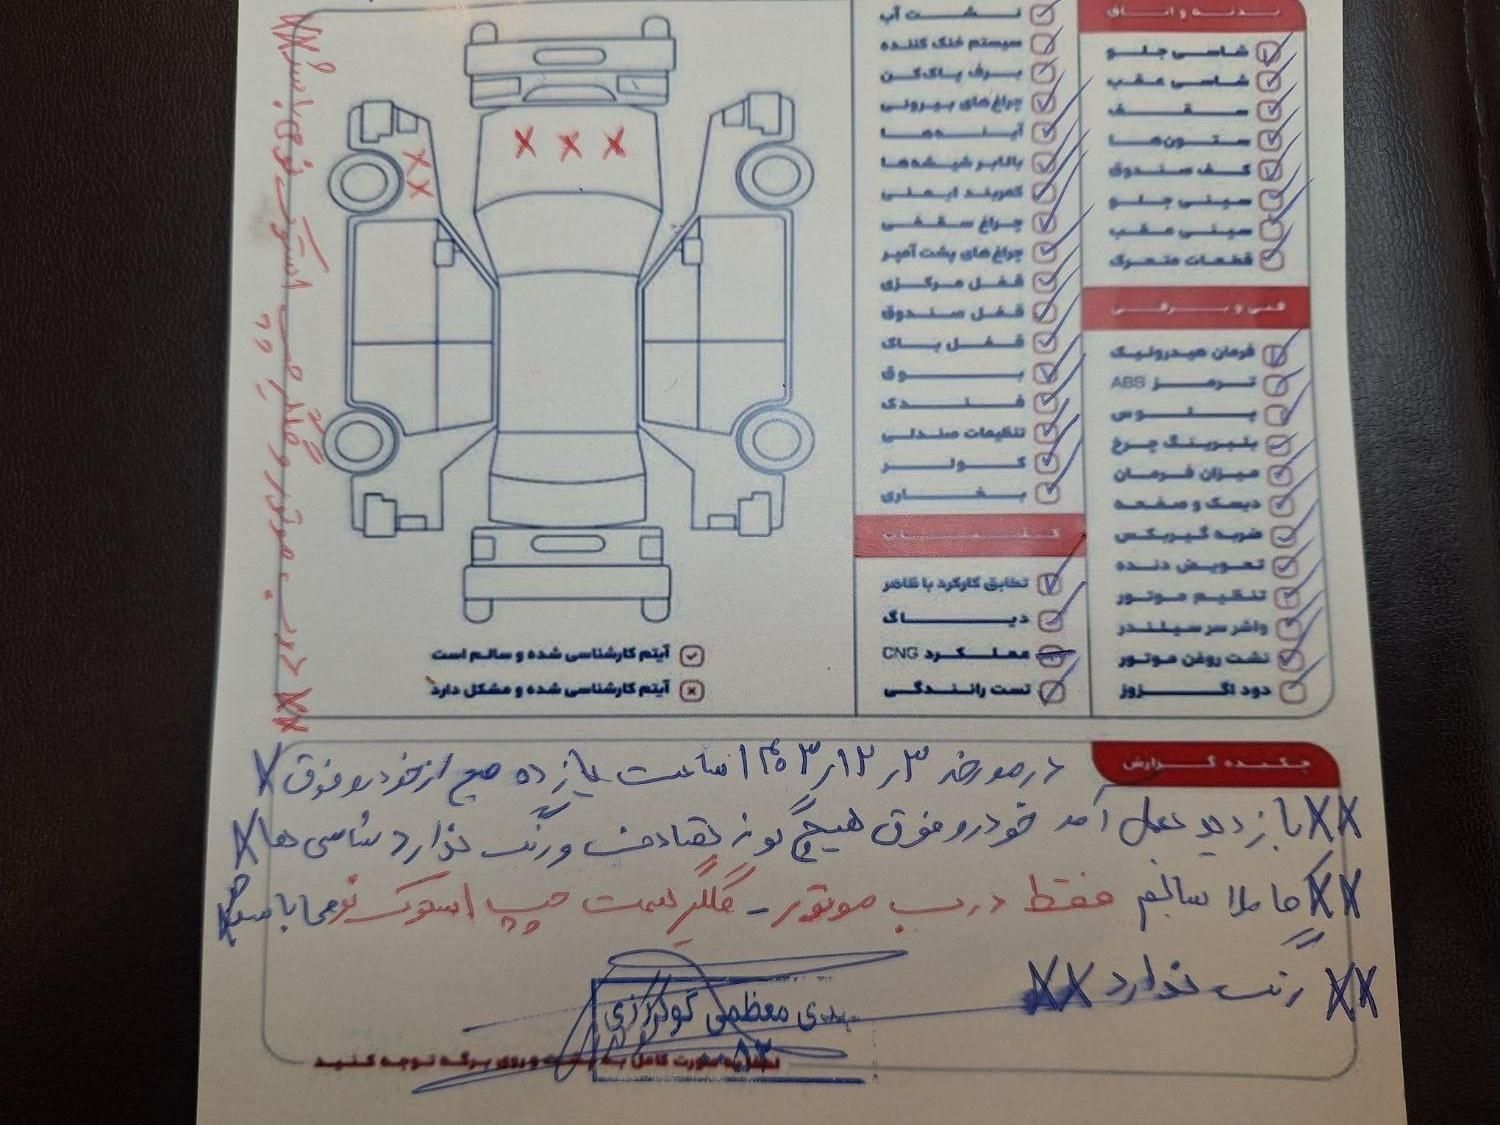 بدنه و اتاق
شاسی جلو
شاسی عقب
سقف
ستون‌ها
کف صندوق
سینی جلو
سینی عقب
قطعات متحرک
فنی و برقی
فرمان هیدرولیک
ترمز ABS
پلوس
بلبرینگ چرخ
میزان فرمان
دیسک و صفحه
ضربه گیربکس
تعویض دنده
تنظیم موتور
واشر سر سیلندر
نشت روغن موتور
دود اگزوز
نشت آب
سیستم خنک کننده
برف پاک‌کن
چراغ‌های بیرونی
آینه‌ها
بالابر شیشه‌ها
کمربند ایمنی
چراغ سقفی
چراغ‌های پشت آمپر
قفل مرکزی
قفل صندوق
قفل باک
بوق
فندک
تنظیمات صندلی
کولر
بخاری
کلیات
تطابق کارکرد با ظاهر
دیاگ
عملکرد CNG
تست رانندگی
X X X
X X X
آیتم کارشناسی شده و سالم است
آیتم کارشناسی شده و مشکل دارد
XX درب موتور و گلگیر چپ استوک نو می باشد XX
چکیده گزارش
در مورخه ۱۴۰۳٫۱۲٫۳ ساعت یازده صبح از خودرو فوق X
XX بازدید بعمل آمد خودرو فوق هیچ گونه تصادف و رنگ ندارد شاسی ها X
XX کاملا سالم فقط درب موتور - گلگیر سمت چپ استوک نو می باشد X
XX رنگ ندارد XX
مهدی معظمی گودرزی
لطفا به صورت کامل به پشت و روی برگه توجه کنید